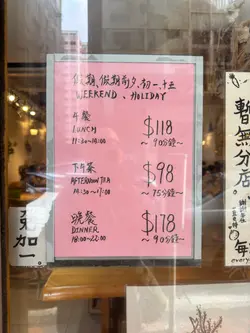 假期、假期前夕、初一、十五
WEEKEND、HOLIDAY
午餐
LUNCH
11:30~18:00
$118
~90分鐘~
下午茶
AFTERNOON TEA
14:30~17:00
$98
~75分鐘~
晚餐
DINNER
18:00~22:00
$178
~90分鐘~
暫無分店。
每
every
加一。